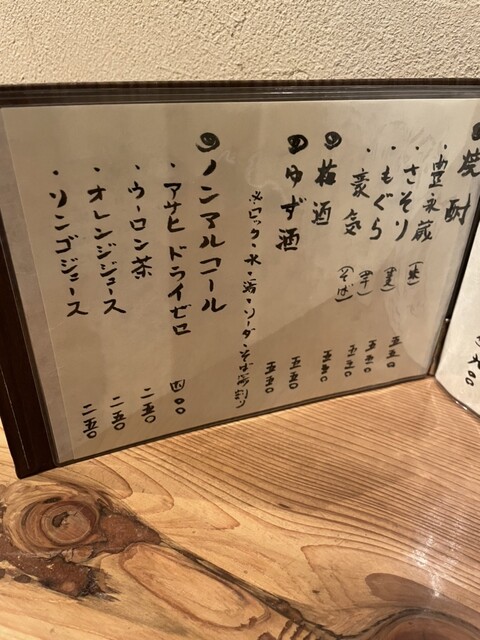 焼酎
・豊永蔵 (米) 五五〇
・さそり (麦) 五五〇
・もぐら (芋) 五五〇
・豪気 (そば) 五五〇
梅酒 五五〇
ゆず酒 五五〇
※ロック・水・湯・ソーダ・そば湯割り
ノンアルコール
・アサヒドライゼロ 四〇〇
・ウーロン茶 二五〇
・オレンジジュース 二五〇
・リンゴジュース 二五〇